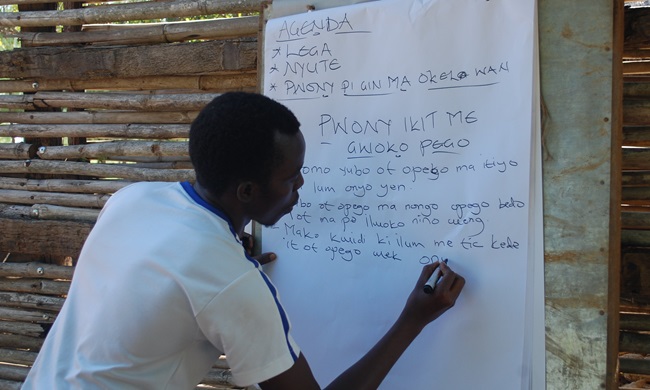 AGENDA
* LEGA
* NYUTE
* PWONY PI GIN MA OKELO WAN
PWONY IKIT ME
GWOKO PEGO
yubo ot opego ma itiyo
lum onyo yen.
ot opego ma nongo opego bedo
ot ma pe ilwoko nino weng
- Mako kwid ki ilum me tic kede
it ot opego wek